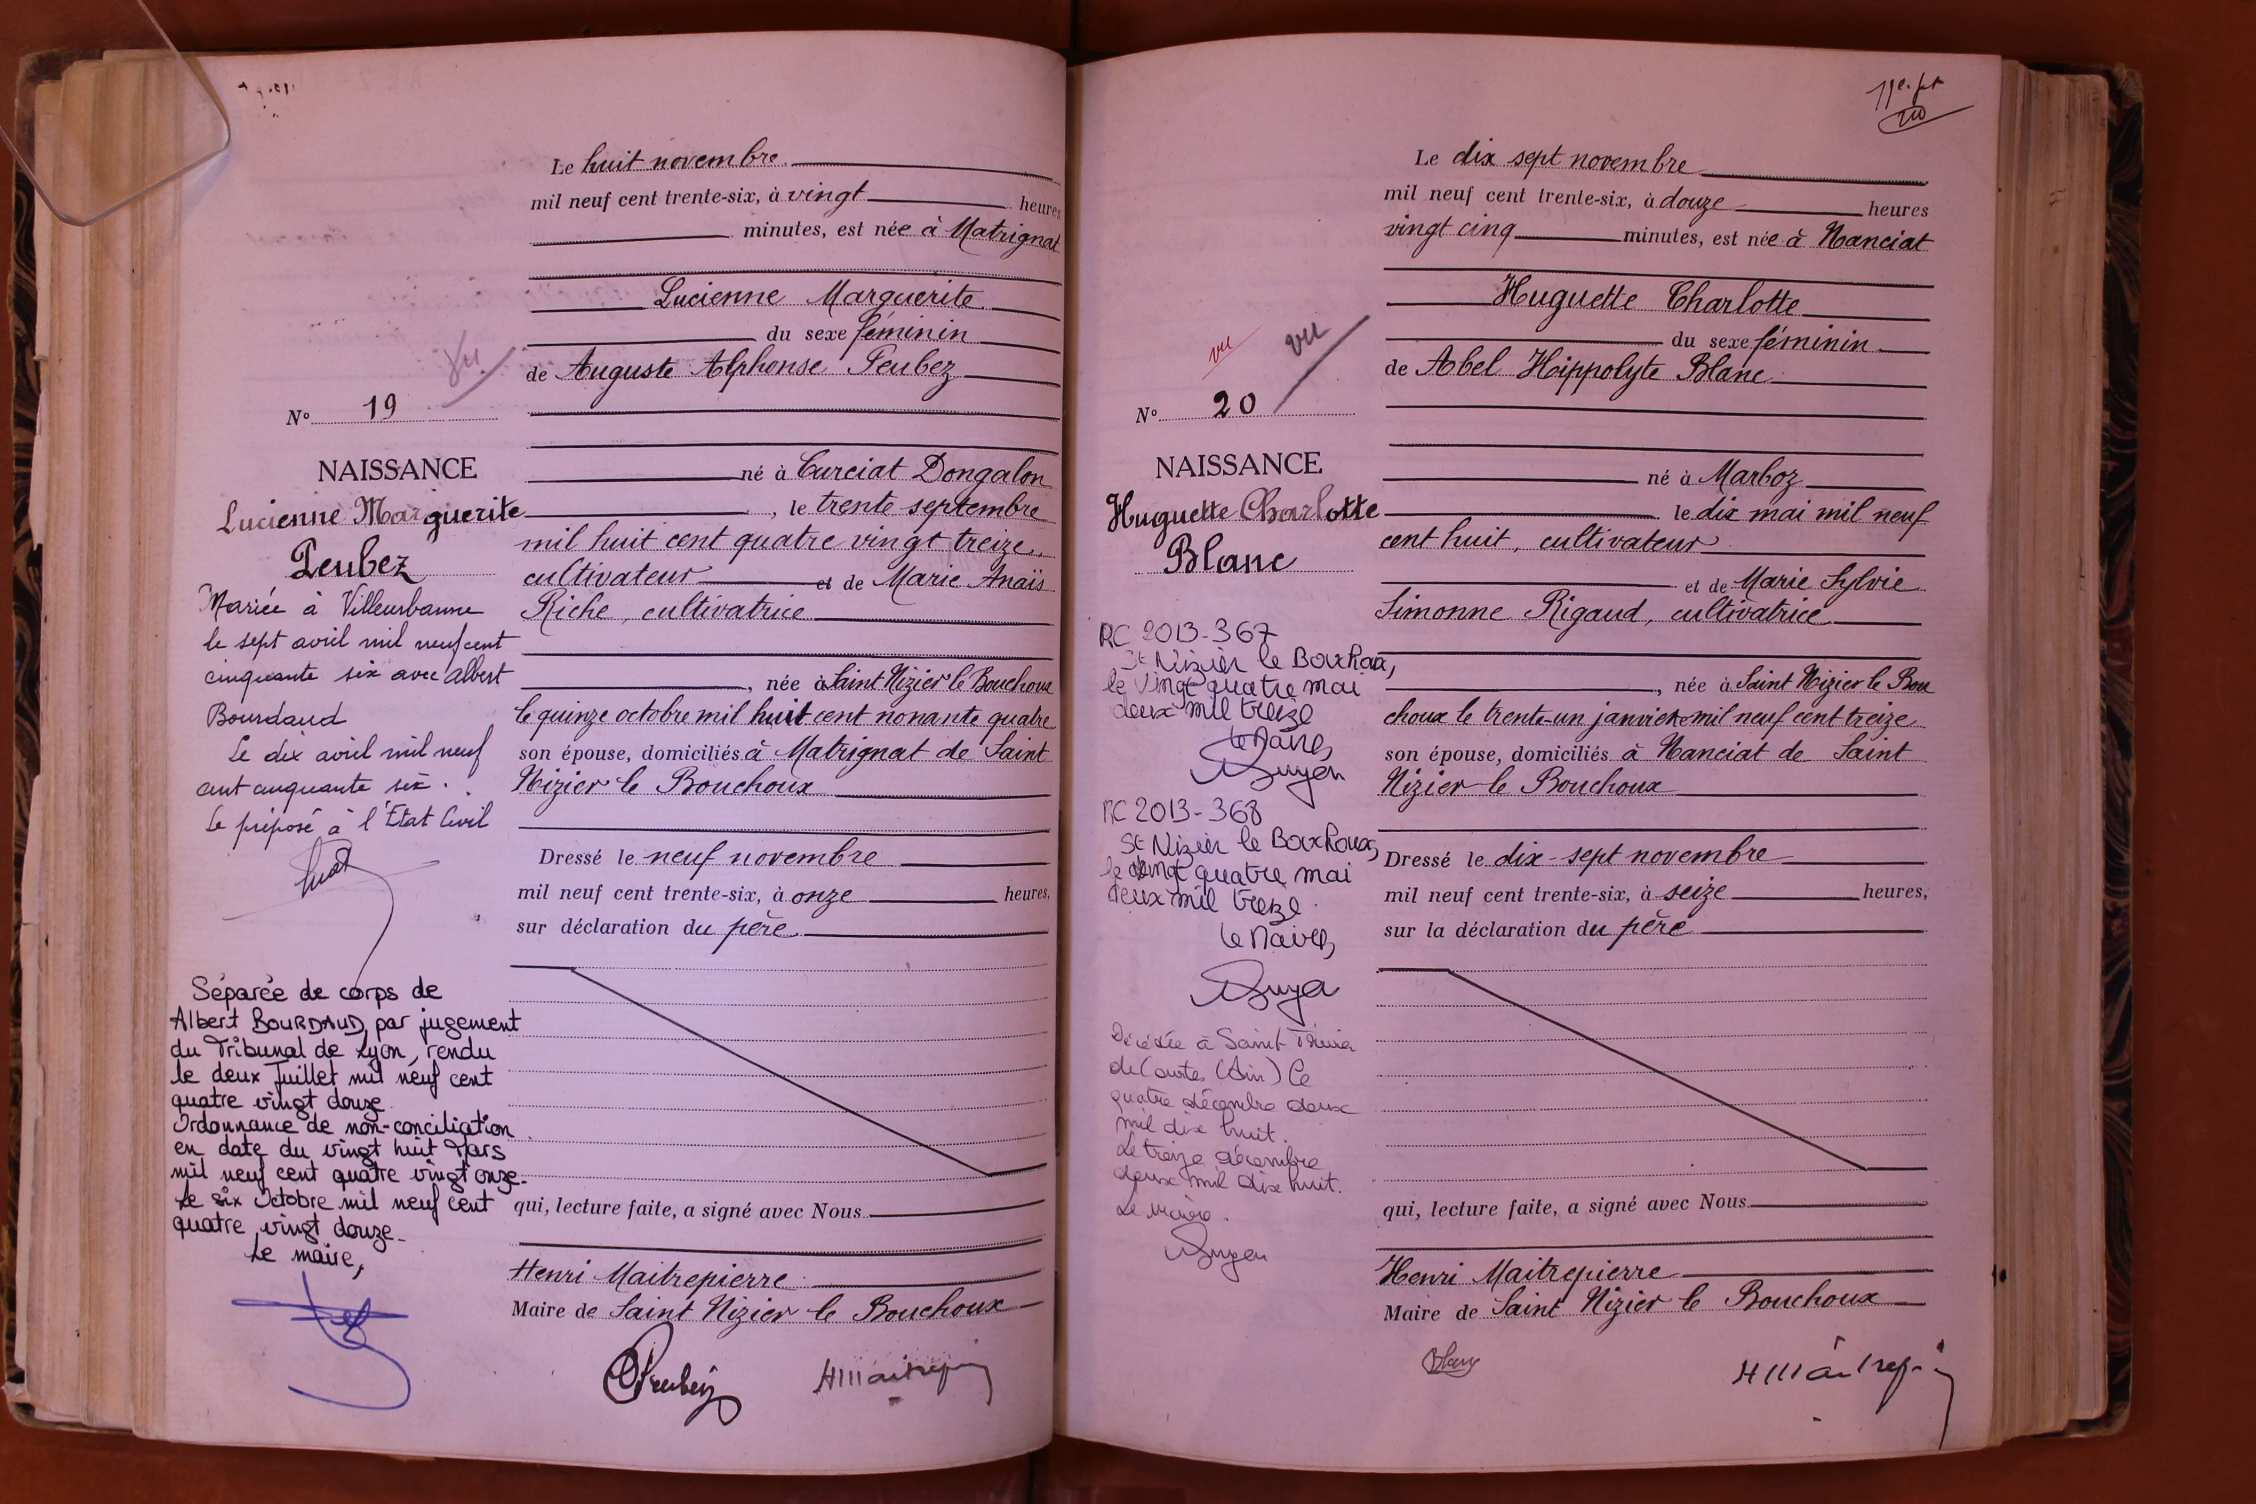 Le huit novembre
mil neuf cent trente-six, à vingt heures
minutes, est née à Matrignat
Lucienne Marguerite
du sexe féminin
de Auguste Alphonse Peubez
né à Curciat Dongalon
, le trente septembre
mil huit cent quatre vingt treize,
cultivateur et de Marie Anaïs
Riche, cultivatrice
, née à Saint Nizier le Bouchoux
le quinze octobre mil huit cent nonante quatre
son épouse, domiciliés à Matrignat de Saint
Nizier le Bouchoux
Dressé le neuf novembre
mil neuf cent trente-six, à onze heures,
sur déclaration du père
qui, lecture faite, a signé avec Nous
Henri Maitrepierre
Maire de Saint Nizier le Bouchoux
Peubez
HMaitrepi
vu
N° 19
NAISSANCE
Lucienne Marguerite
Peubez
Mariée à Villeurbanne
le sept avril mil neuf cent
cinquante six avec Albert
Bourdaud
Le dix avril mil neuf
cent cinquante six.
Le préposé à l'Etat Civil
Séparée de corps de
Albert BOURDAUD, par jugement
du Tribunal de Lyon, rendu
le deux Juillet mil neuf cent
quatre vingt douze
Ordonnance de non-conciliation
en date du vingt huit Mars
mil neuf cent quatre vingt onze.
Le six Octobre mil neuf cent
quatre vingt douze.
Le maire,
11e. ft
20
Le dix sept novembre
mil neuf cent trente-six, à douze heures
vingt cinq minutes, est née à Nanciat
Huguette Charlotte
du sexe féminin
de Abel Hippolyte Blanc
né à Marboz
le dix mai mil neuf
cent huit, cultivateur
et de Marie Sylvie
Simonne Rigaud, cultivatrice
, née à Saint Nizier le Bou
choux le trente-un janvier mil neuf cent treize
son épouse, domiciliés à Nanciat de Saint
Nizier le Bouchoux
Dressé le dix-sept novembre
mil neuf cent trente-six, à seize heures,
sur la déclaration du père
qui, lecture faite, a signé avec Nous
Henri Maitrepierre
Maire de Saint Nizier le Bouchoux
Blanc
HMaitrepi
vu vu
N° 20
NAISSANCE
Huguette Charlotte
Blanc
RC 2013-367
St Nizier le Bouchoux,
le vingt quatre mai
deux mil treize
Le Maire,
RC 2013-368
St Nizier le Bouchoux,
le vingt quatre mai
deux mil treize.
Le Maire,
Décédée à Saint Trivier
de Courtes (Ain) le
quatre décembre deux
mil dix huit.
Le treize décembre
deux mil dix huit.
Le Maire.